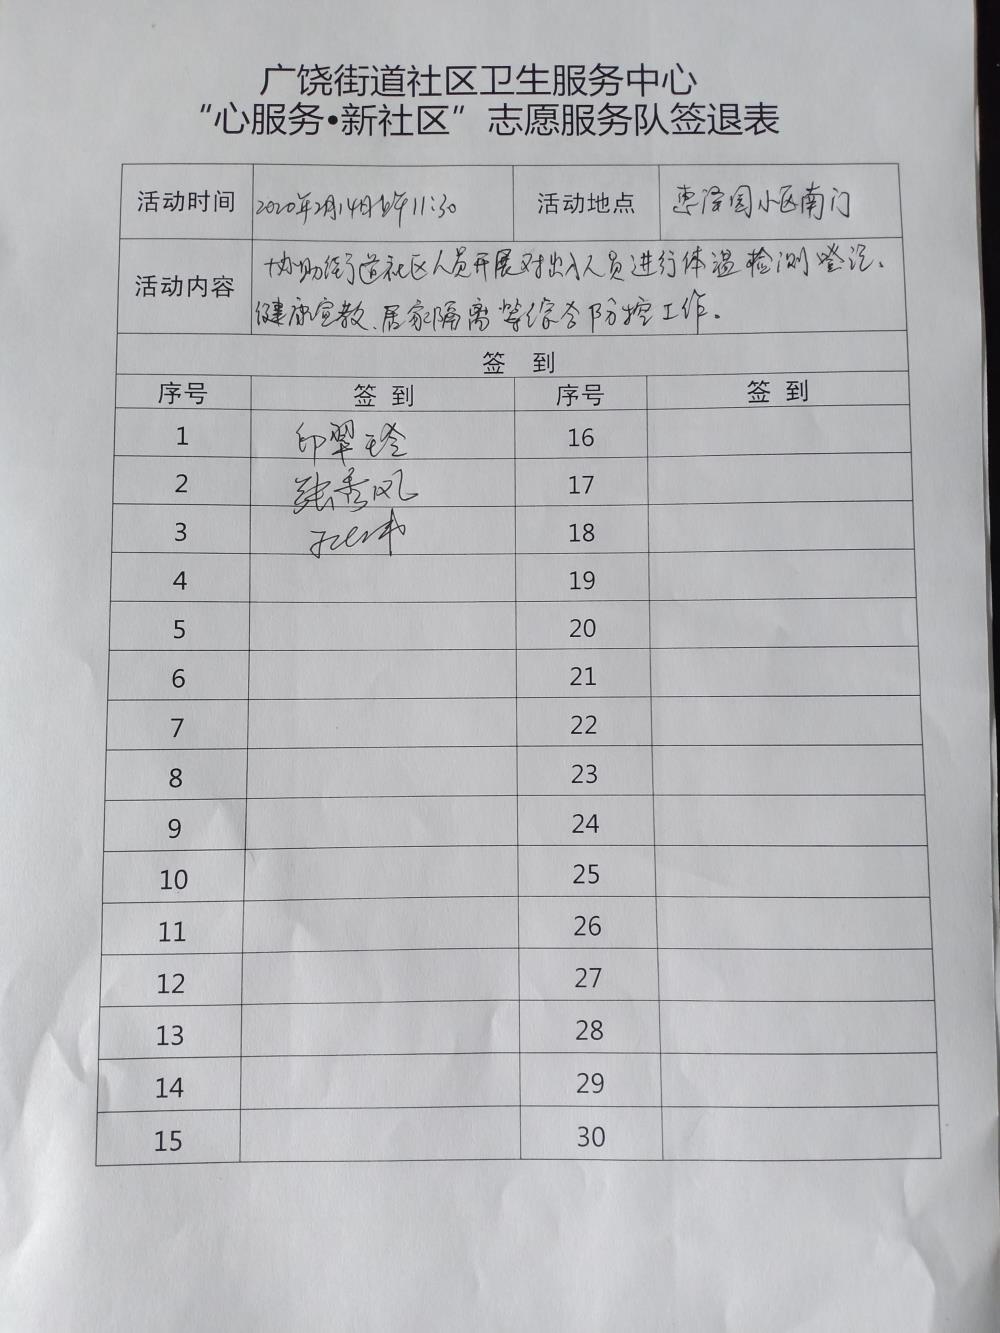 广饶街道社区卫生服务中心
“心服务•新社区”志愿服务队签退表
活动时间 2020年2月14日上午11:30 活动地点 惠泽园小区南门
活动内容 协助街道社区人员开展对出入人员进行体温检测登记、
健康宣教、居家隔离等综合防控工作。
签 到
序号 签 到 序号 签 到
1 印翠玲 16
2 张秀风 17
3 18
4 19
5 20
6 21
7 22
8 23
9 24
10 25
11 26
12 27
13 28
14 29
15 30